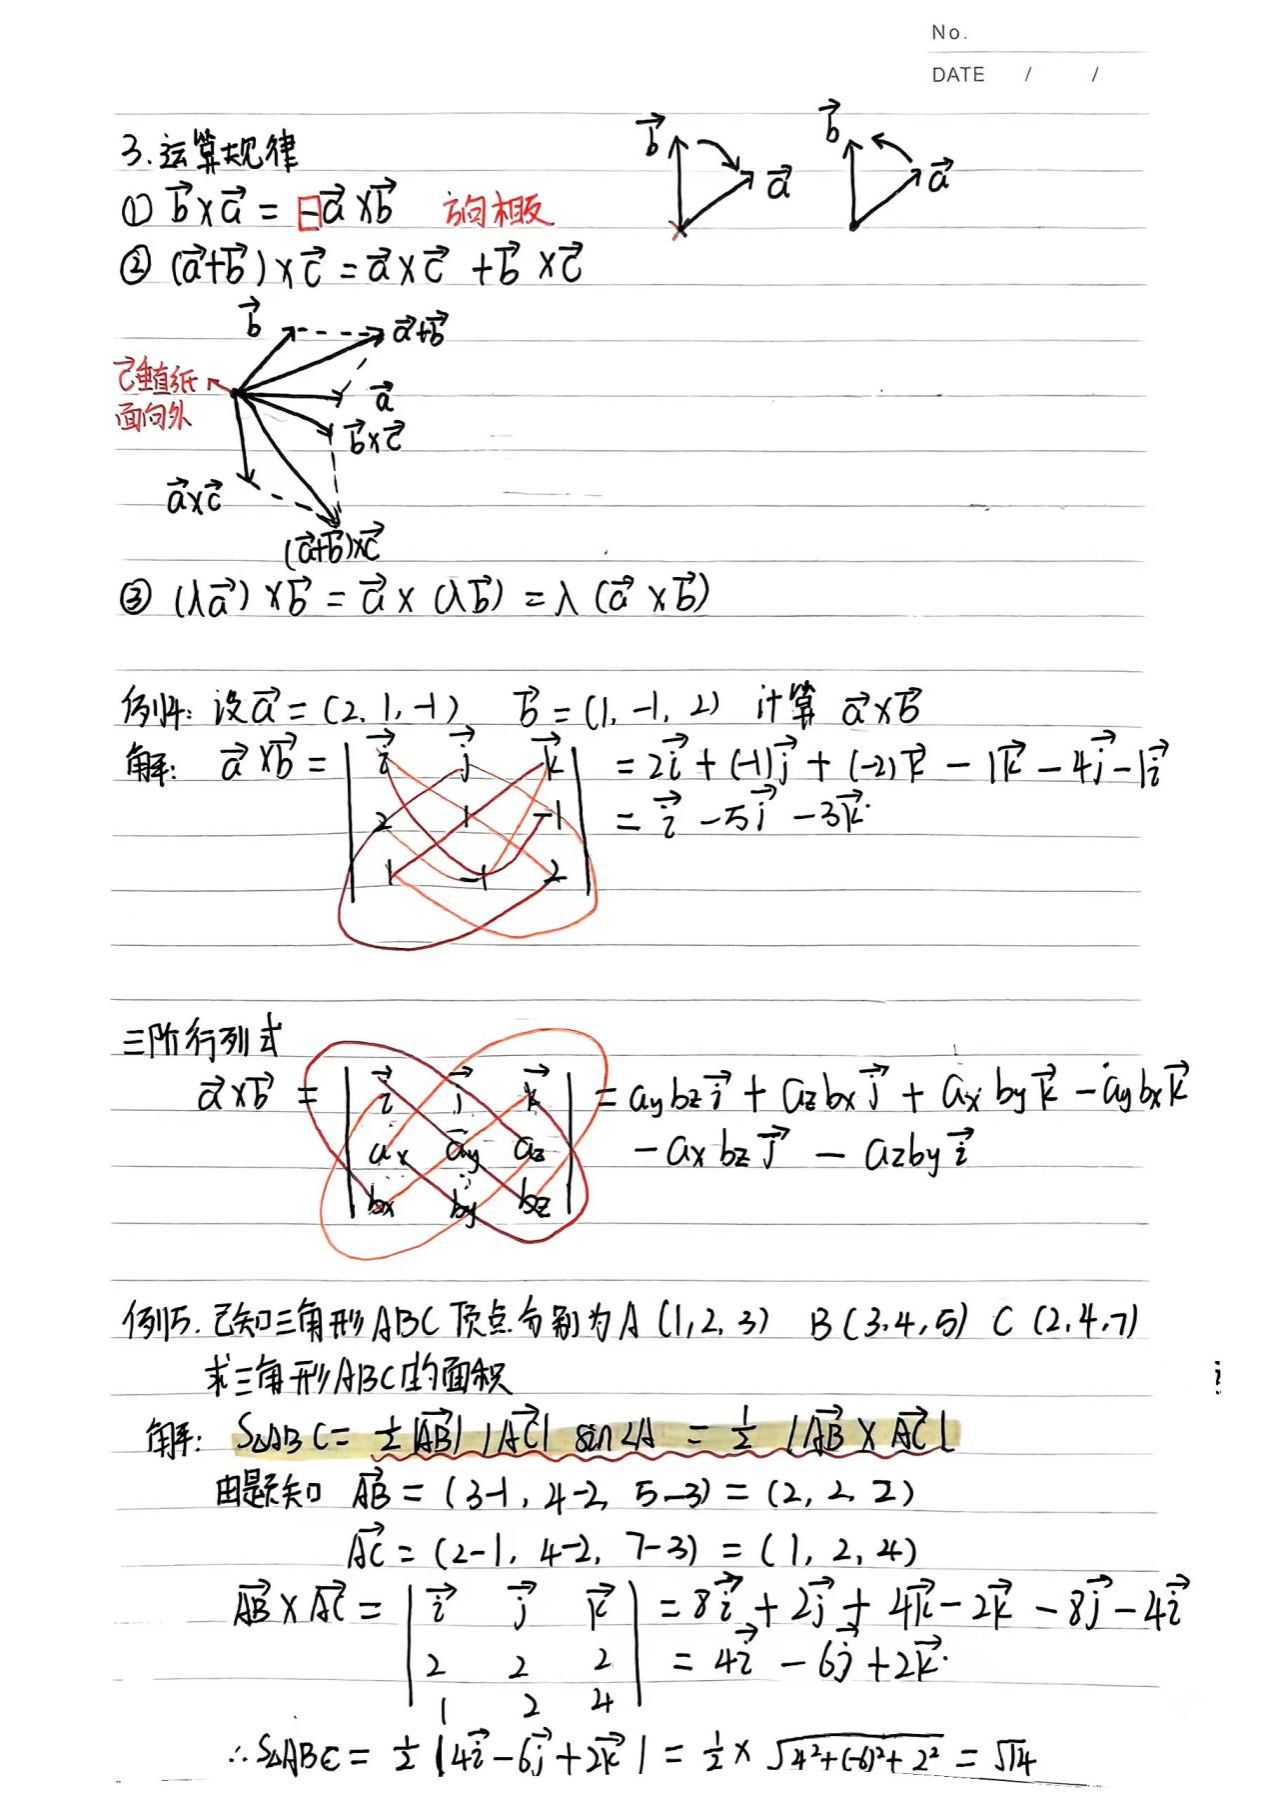 No.
DATE / /
3.运算规律
① b⃗×a⃗ = -a⃗×b⃗ 方向相反
b⃗ a⃗ b⃗ a⃗
② (a⃗+b⃗)×c⃗ = a⃗×c⃗ + b⃗×c⃗
b⃗ a⃗+b⃗
c⃗垂直纸
面向外
a⃗
b⃗×c⃗
a⃗×c⃗
(a⃗+b⃗)×c⃗
③ (λa⃗)×b⃗ = a⃗×(λb⃗) = λ(a⃗×b⃗)
例4: 设a⃗ = (2, 1, -1) b⃗ = (1, -1, 2) 计算 a⃗×b⃗
解: a⃗×b⃗ = | i⃗ j⃗ k⃗ | = 2i⃗ + (-1)j⃗ + (-2)k⃗ - 1k⃗ - 4j⃗ - 1i⃗
2 1 -1 = i⃗ - 5j⃗ - 3k⃗.
1 -1 2
三阶行列式
a⃗×b⃗ = | i⃗ j⃗ k⃗ | = aybz i⃗ + azbx j⃗ + ax by k⃗ - aybx k⃗
ax ay az - ax bz j⃗ - azby i⃗
bx by bz
例5. 已知三角形ABC顶点分别为A (1, 2, 3) B (3, 4, 5) C (2, 4, 7)
求三角形ABC的面积
解: S△ABC = ½|AB⃗| |AC⃗| sin∠A = ½ |AB⃗ × AC⃗|
由题知 AB⃗ = (3-1, 4-2, 5-3) = (2, 2, 2)
AC⃗ = (2-1, 4-2, 7-3) = (1, 2, 4)
AB⃗ × AC⃗ = | i⃗ j⃗ k⃗ | = 8i⃗ + 2j⃗ + 4k⃗ - 2k⃗ - 8j⃗ - 4i⃗
2 2 2 = 4i⃗ - 6j⃗ + 2k⃗.
1 2 4
∴ S△ABC = ½ |4i⃗ - 6j⃗ + 2k⃗| = ½ × √(4²+(-6)²+2²) = √14